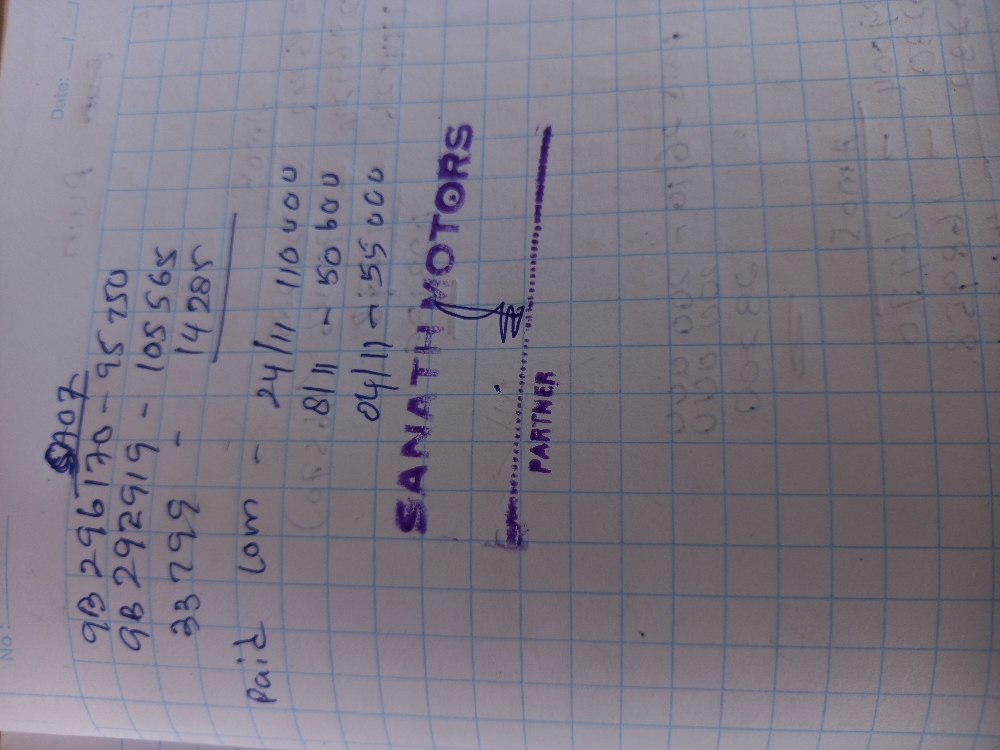 SA07
9B 296170 - 95 750
9B 292919 - 105 565
33 799 - 14 285
Paid Com - 24/11 110 000
18/11 - 50 600
04/11 - 55 000
SANATH MOTORS
PARTNER
No :
Date: